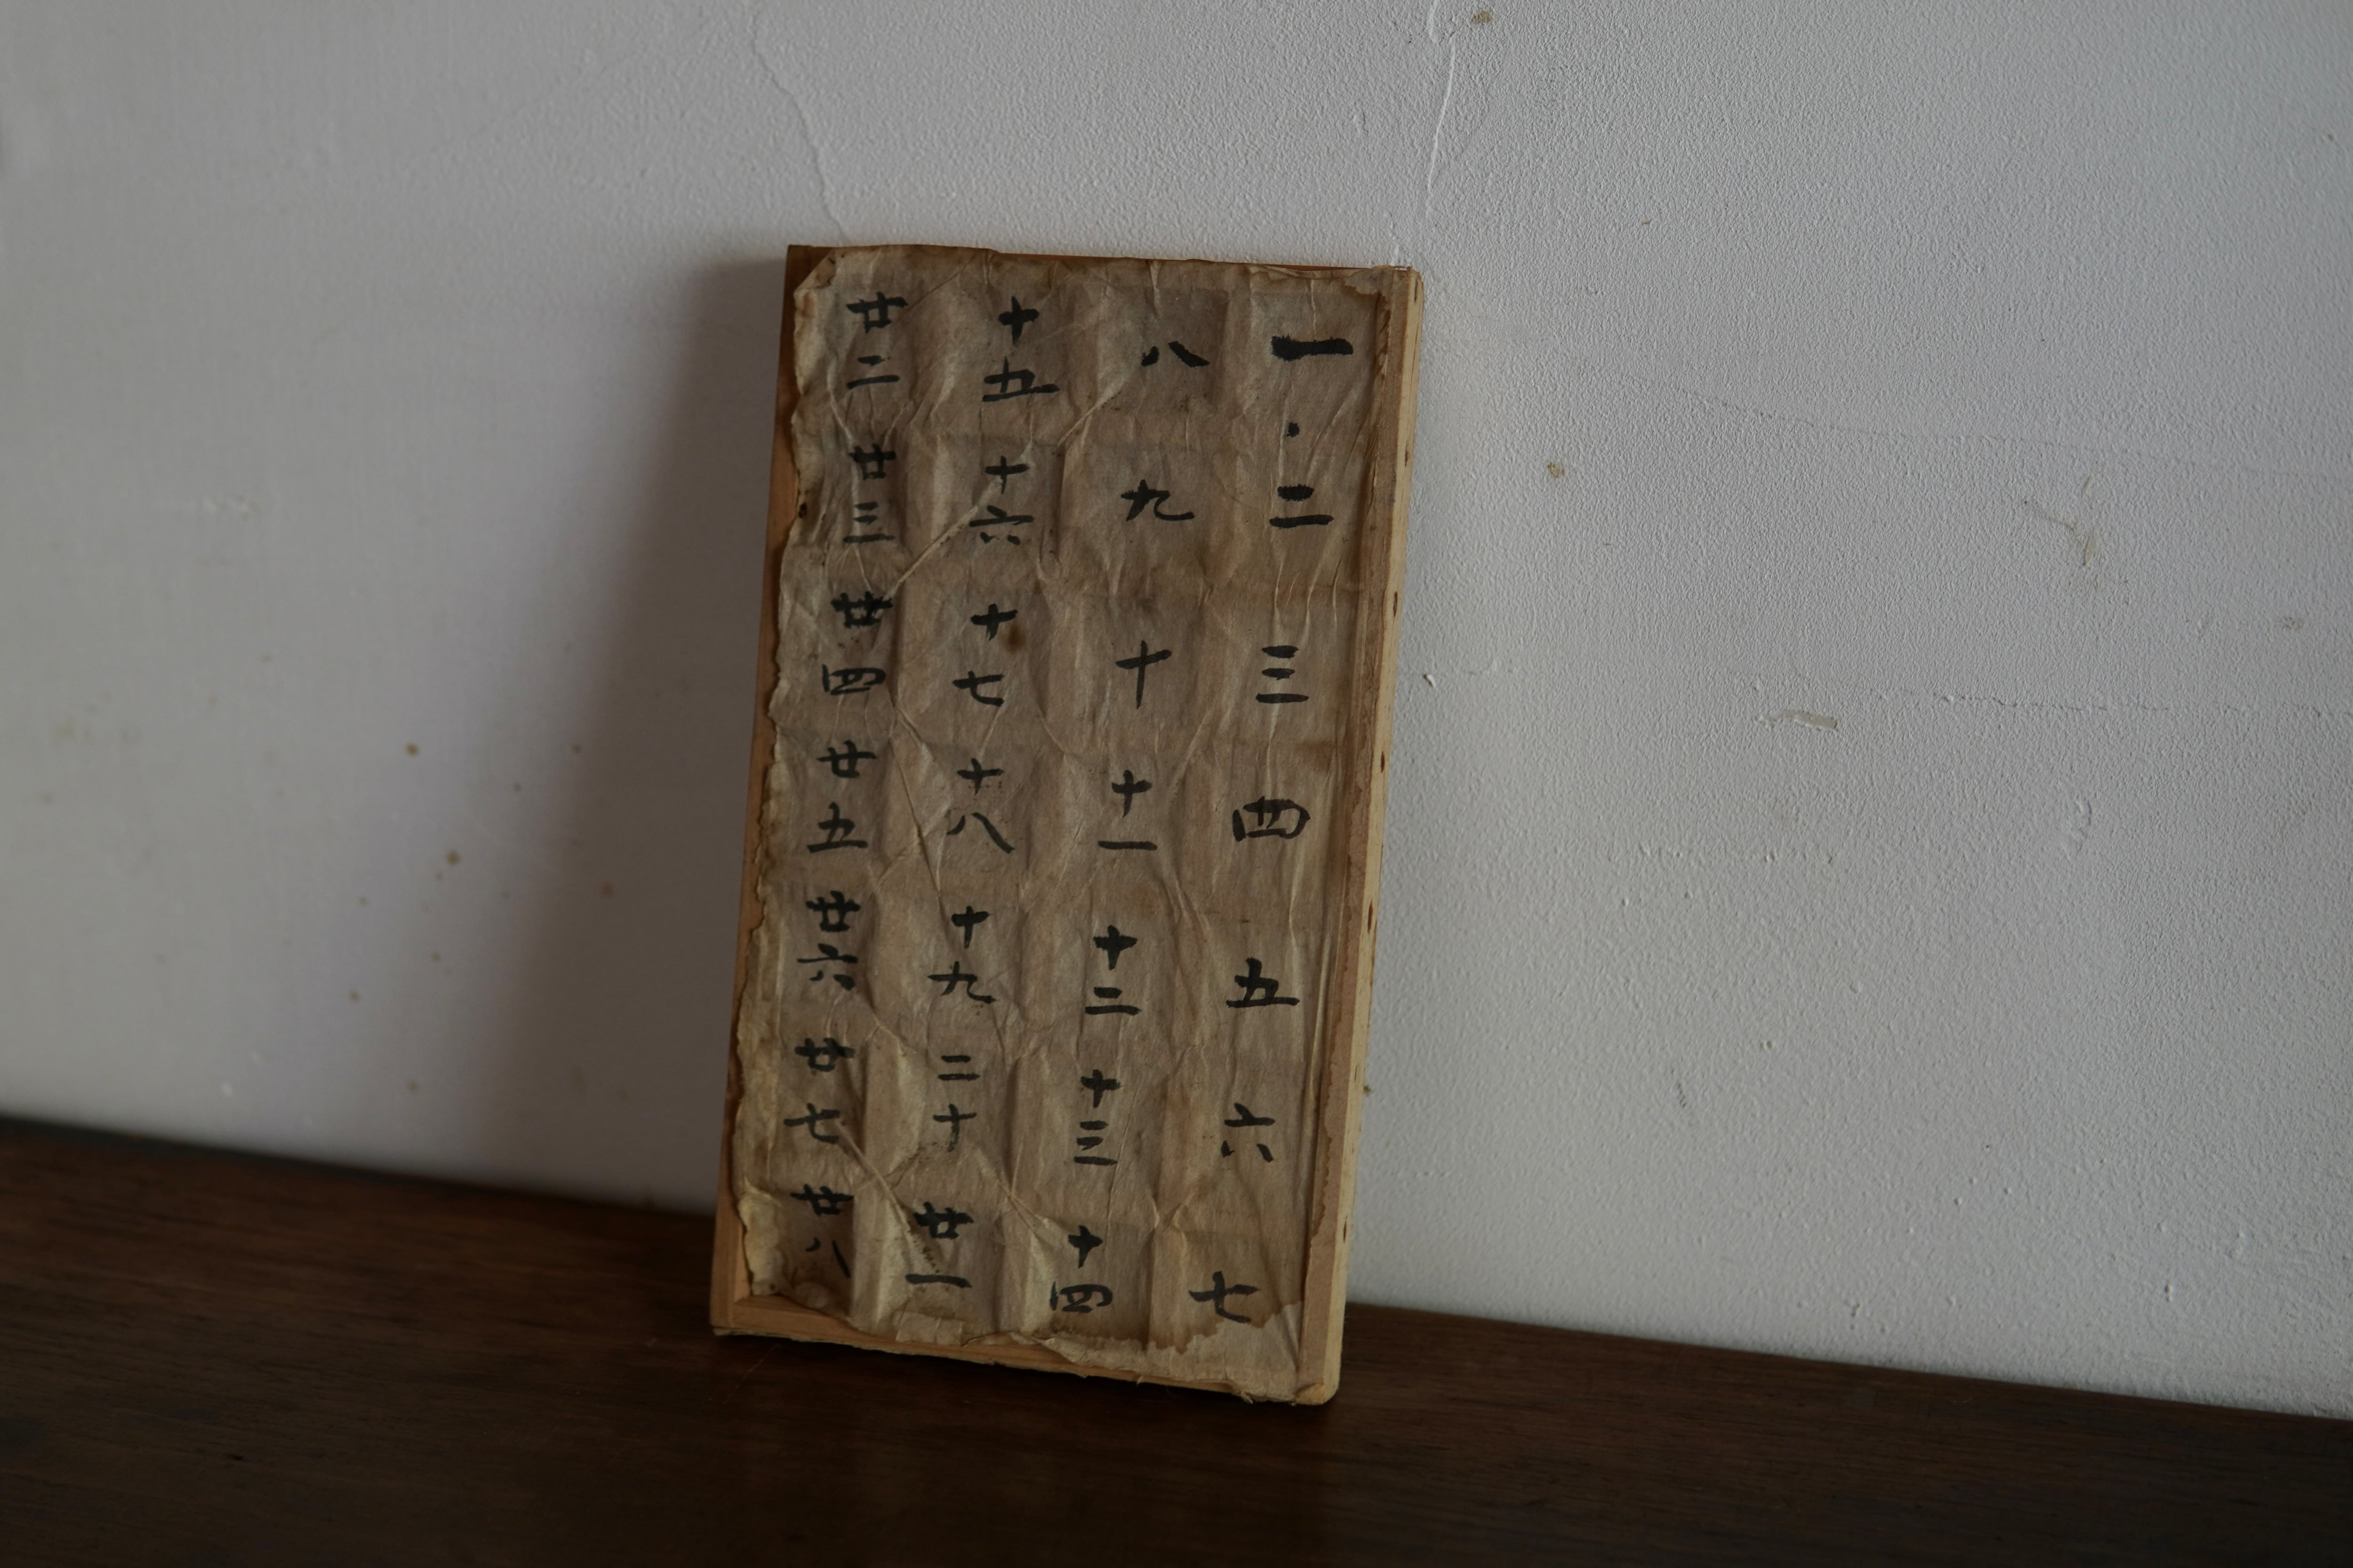 一・二三四五六七
八九十十一十二十三十四
十五十六十七十八十九二十廿一
廿二廿三廿四廿五廿六廿七廿八